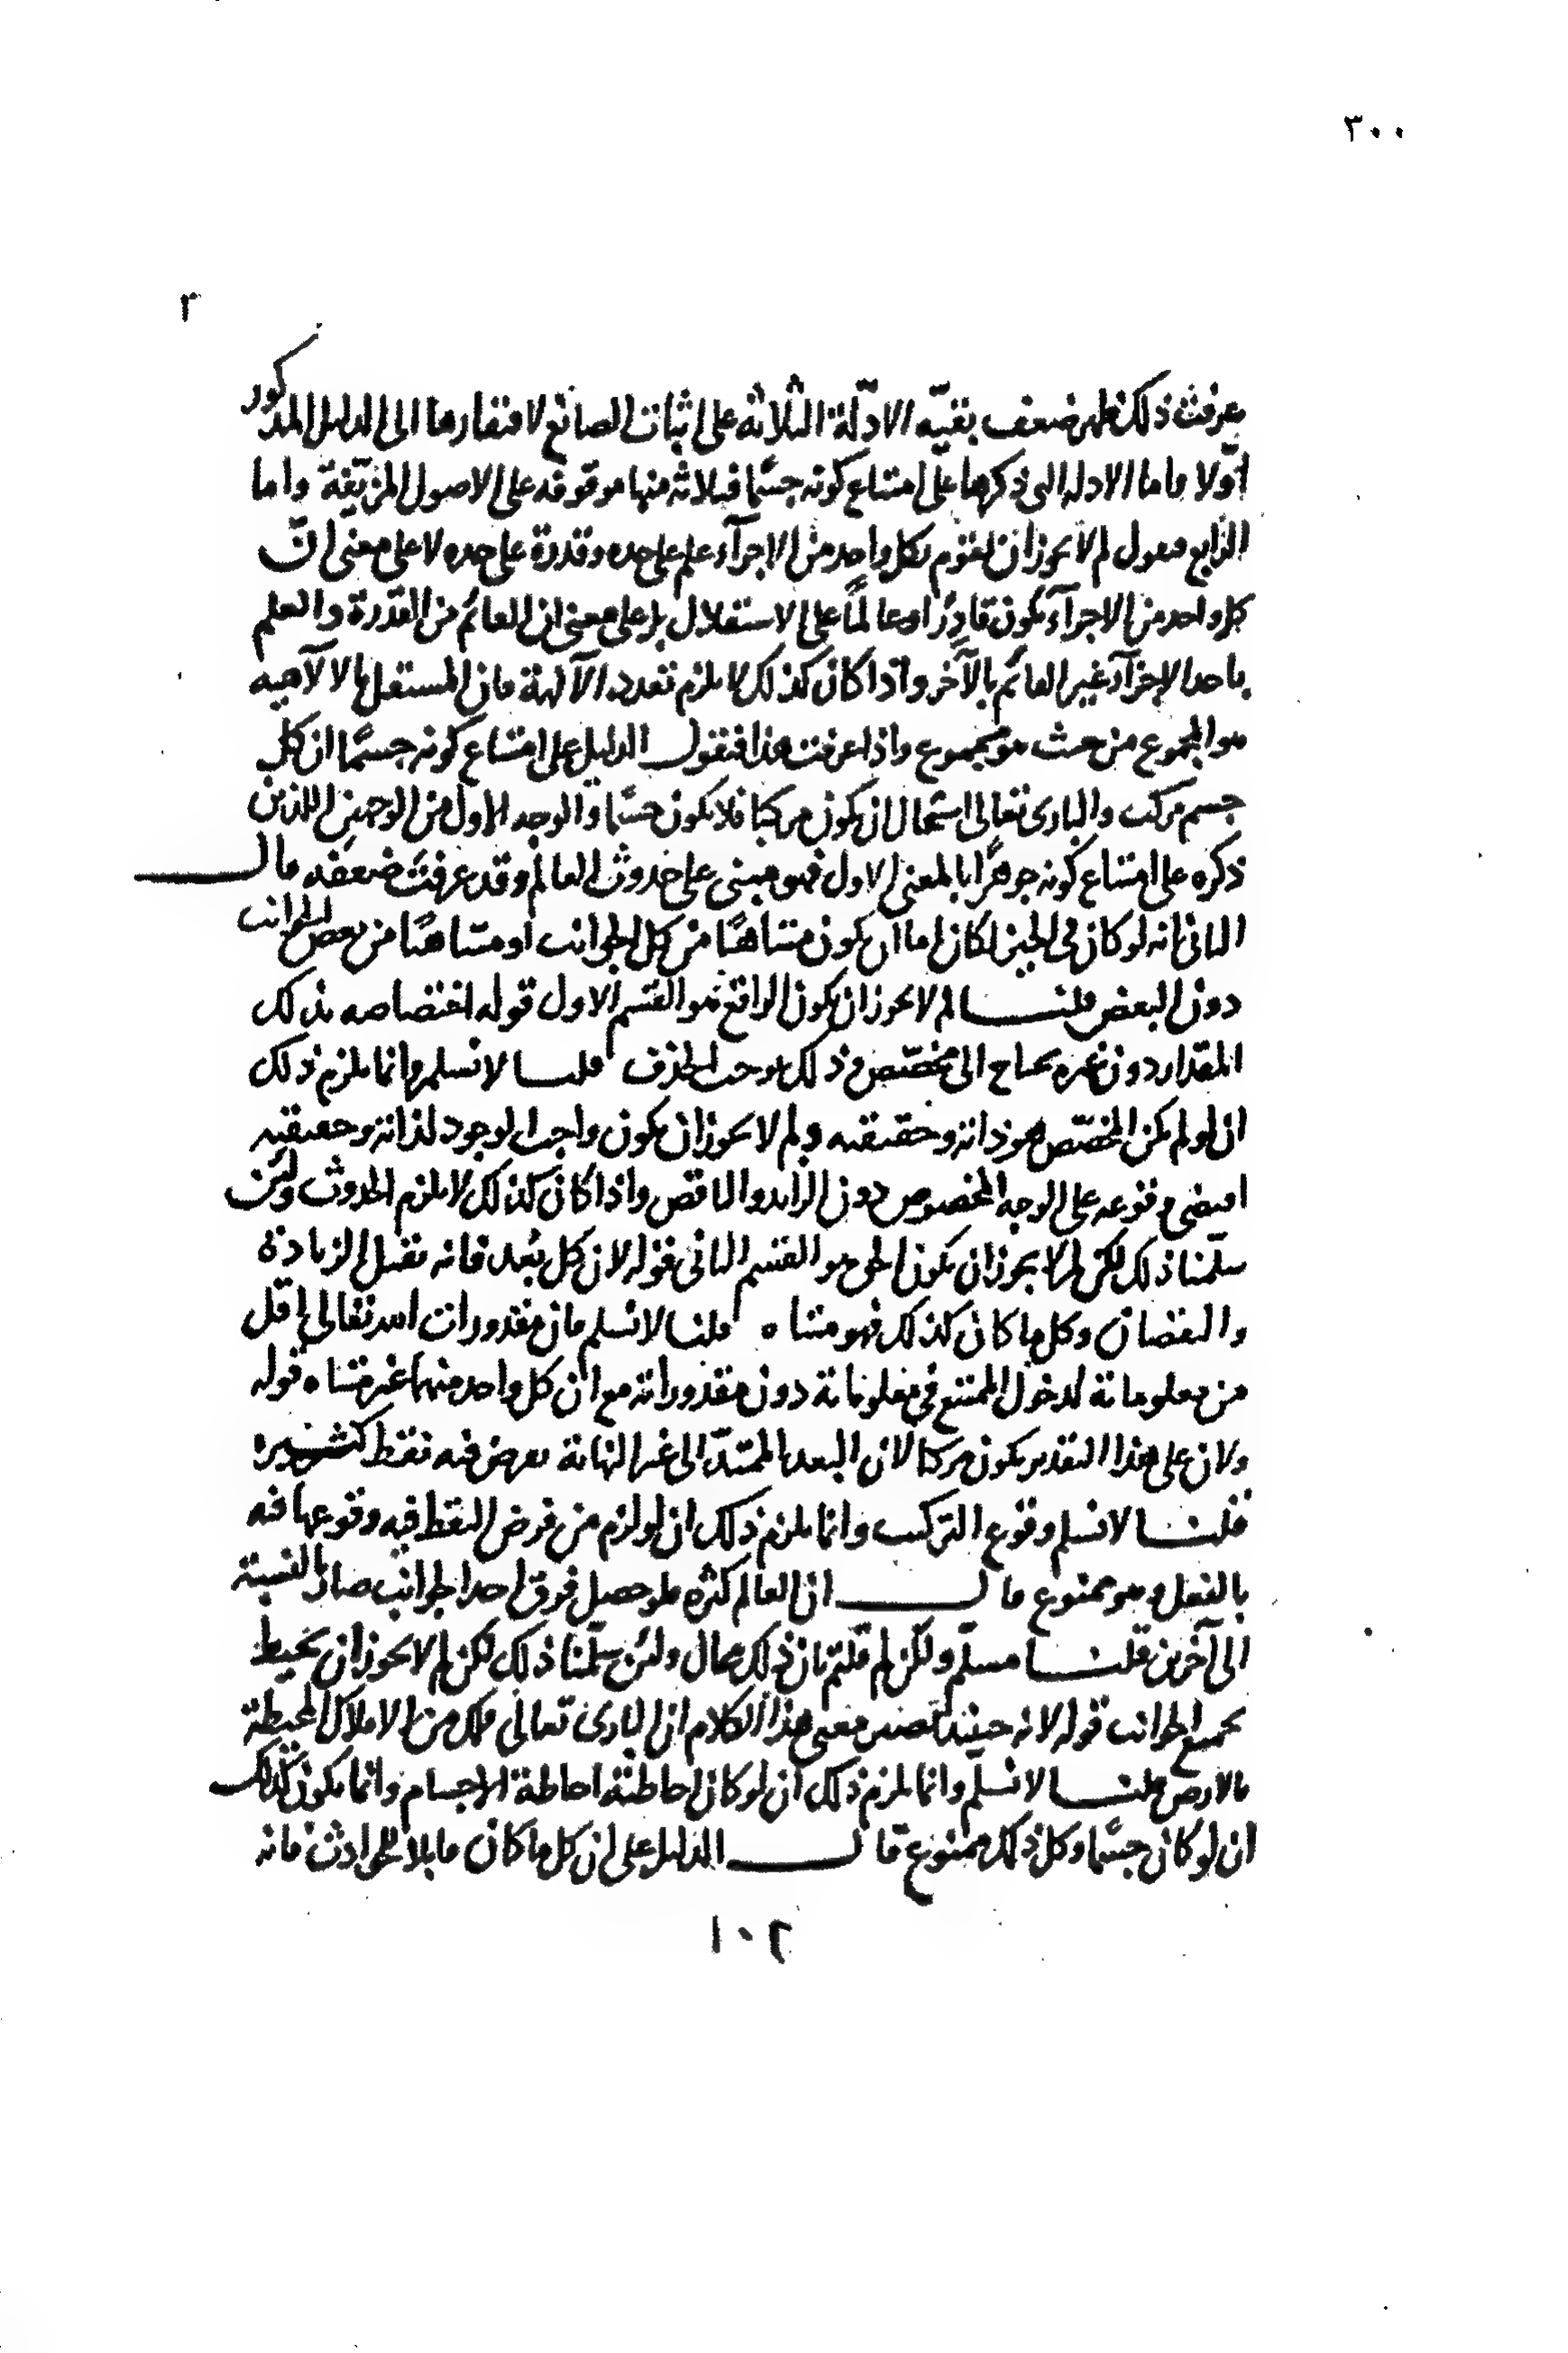 ٣٠٠
٢
عرفت ذلك ظهر ضعف بقيّة الادلّة الثلاثة على اثبات الصانع لافتقارها الى الدليل المذكور
اوّلا واما الادلة التى ذكرها على امتناع كونه جسمًا فثلاثة منها موقوفه على الاصول المزيّفة واما
الرابع فنقول لم لا يجوز ان يقوم بكل واحد من الاجزآء علم على حده وقدرة على حده لا على معنى انّ
كل واحد من الاجزآء يكون قادرًا وعالمًا على الاستقلال بل على معنى ان القائم من القدرة والعلم
باحد الاجزآء غير القائم بالآخر واذا كان كذلك لا يلزم تعدد الآلهة فان المستقل بالالآهيه
هو المجموع من حيث هو مجموع واذا عرفت هذا فنقول الدليل على امتناع كونه جسمًا ان كل
جسم مركب والبارى تعالى استحال ان يكون مركبا فلا يكون جسمًا والوجه الاول من الوجهين اللذين
ذكره على امتناع كونه جوهرًا بالمعنى الاول فهو مبنى على حدوث العالم وقد عرفت ضعفه قال
الثانى انه لو كان فى الحيز لكان اما ان يكون متناهيًا من كل الجوانب او متناهيًا من بعض الجوانب
دون البعض قلنا لم لا يجوز ان يكون الواقع هو القسم الاول قوله اختصاصه بذلك
المقدار دون غيره يحتاج الى مخصّص وذلك يوجب الحدث قلنا لا نسلم وانما يلزم ذلك
ان لو لم يكن المخصّص هو ذاته وحقيقته ولم لا يجوز ان يكون واجب الوجود لذاته وحقيقته
اقتضى وقوعه على الوجه المخصوص دون الزايد والناقص واذا كان كذلك لا يلزم الحدوث ولئن
سلّمنا ذلك لكن لم لا يجوز ان يكون الحق هو القسم الثانى قوله لان كل بُعد فانه يقبل الزيادة
والنقصان وكل ما كان كذلك فهو متناه قلنا لا نسلم فان مقدورات الله تعالى اقل
من معلوماتة لدخول الممتنع في معلوماتة دون مقدوراته مع ان كل واحد منهما غير متناه قوله
ولان على هذا التقدير يكون مركبا لان البعد الممتدّ الى غير النهاية يعرض فيه نقط كثيره
قلنا لا نسلم وقوع التركيب وانما يلزم ذلك ان لو لزم من فرض النقط فيه وقوعها فيه
بالفعل وهو ممنوع قال ان العالم كثره فلو حصل فوق احد الجوانب صار بالنسبة
الى آخرين قلنا مسلّم ولكن لم قلتم بان ذلك محال ولئن سلّمنا ذلك لكن لم لا يجوز ان يحيط
بجميع الجوانب قوله لانه حينئذ يصير معنى هذا الكلام ان البارى تعالى فلك من الافلاك المحيطة
بالارض قلنا لا نسلّم وانما يلزم ذلك ان لو كان احاطته احاطة الاجسام وانما يكون كذلك
ان لو كان جسمًا وكل ذلك ممنوع قال الدليل على ان كل ما كان قابلا للحوادث فانه
١٠٢